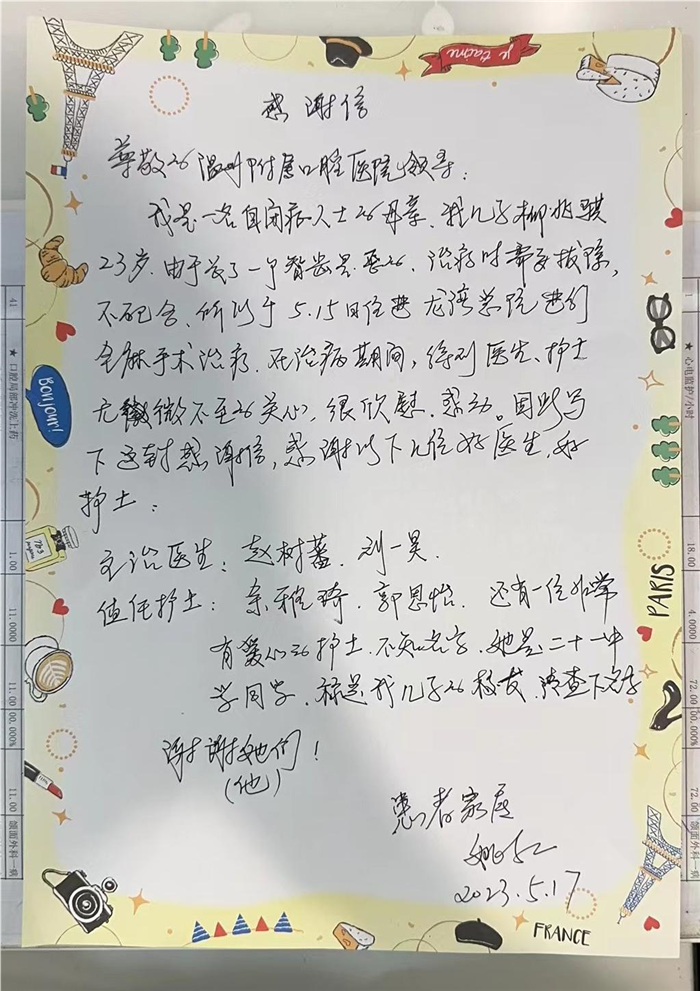 je t'aime
感谢信
尊敬的温州附属口腔医院领导：
我是一名自闭症人士的母亲，我儿子柳兆骐
23岁。由于长了一个智齿是歪的，治疗时需要拔除，
不配合，所以于5.15日住进龙湾总院进行
全麻手术治疗。在治病期间，得到医生、护士
无微不至的关心，很欣慰、感动。因此写
下这封感谢信，感谢以下几位好医生，好
护士：
主治医生：赵树蕃、刘一昊
值班护士：余雅琦、郭思怡、还有一位非常
有爱心的护士，不知名字，她是二十一中
学同学，标是我儿子的校友，请查下名字
谢谢她们！
（他）
患者家属
姚
2023.5.17
Bonjour!
PARIS
FRANCE
41
★ 口腔局部冲洗上药
1.00
11.0000
11.00
100.000%
11.00
颌面外科一病
★ 心电监护/小时
18.00
4.0000
72.00
100.000%
72.00
颌面外科一病